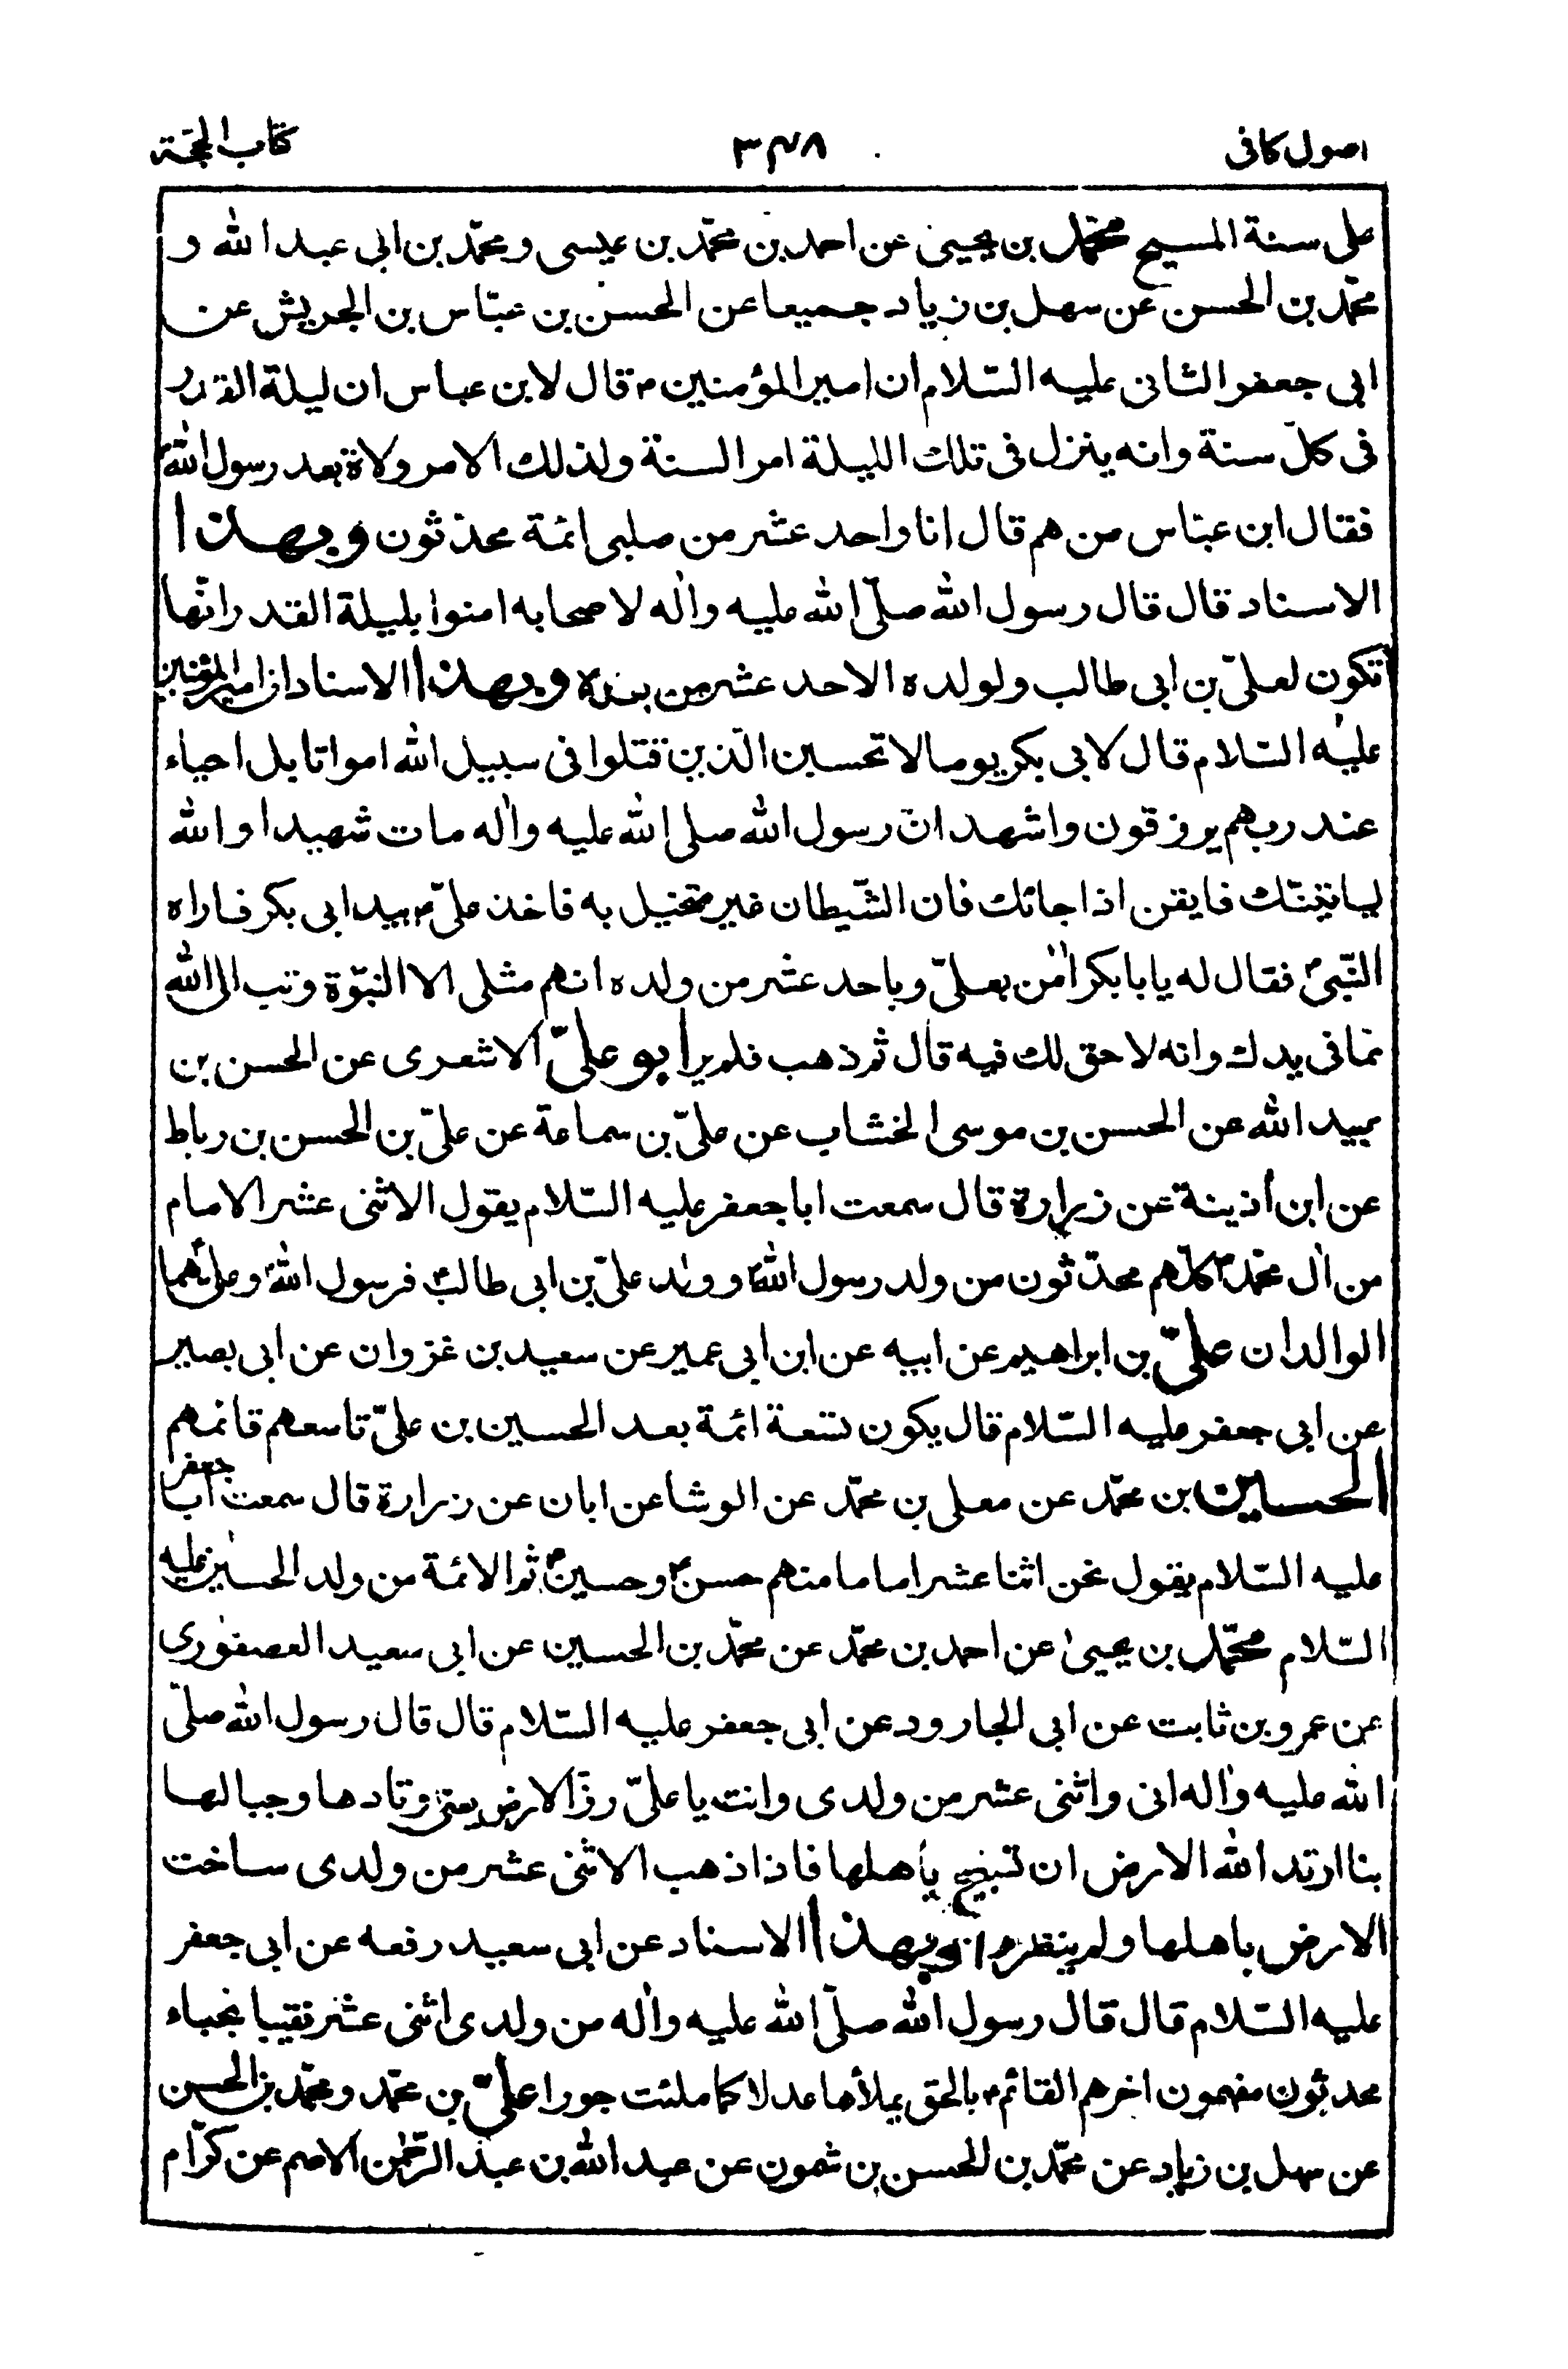 اصول كافى ٣٤٨ كتاب الحجة
على سنة المسيح محمّد بن يحيى عن احمد بن محمّد بن عيسى ومحمّد بن ابى عبد الله و
محمّد بن الحسن عن سهل بن زياد جميعا عن الحسن بن عبّاس بن الجريش عن
ابى جعفر الثانى عليه السّلام ان امير المؤمنين م قال لابن عباس ان ليلة القدر
فى كلّ سنة وانه ينزل فى تلك الليلة امر السنة ولذلك الامر ولاة بعد رسول الله ص
فقال ابن عبّاس من هم قال انا واحد عشر من صلبى ائمة محدثون وبهذا
الاسناد قال قال رسول الله صلّى الله عليه واله لاصحابه امنوا بليلة القدر انّها
تكون لعلىّ بن ابى طالب ولولده الاحد عشر من بعده وبهذا الاسناد ان امير المؤمنين
عليه السّلام قال لابى بكر يوما لا تحسبن الّذين قتلوا فى سبيل الله امواتا بل احياء
عند ربهم يرزقون واشهد انّ رسول الله صلى الله عليه واله مات شهيدا والله
لياتينّك فايقن اذا جائك فان الشّيطان غير متخيل به فاخذ علىّ م بيد ابى بكر فاراه
النّبىّ ص فقال له يا بابكر امن بعلىّ وباحد عشر من ولده انهم مثلى الا النبوّة وتب الى الله
ممّا فى يدك وانه لا حق لك فيه قال ثم ذهب فلم ير ابو علىّ الاشعرى عن الحسن بن
عبيد الله عن الحسن بن موسى الخشاب عن علىّ بن سماعة عن علىّ بن الحسن بن رباط
عن ابن اذينة عن زرارة قال سمعت ابا جعفر عليه السّلام يقول الاثنى عشر الامام
من ال محمّد ص كلّهم محدّثون من ولد رسول الله ص وولد علىّ بن ابى طالب ع فرسول الله ص وعلى ع هما
الوالدان علىّ بن ابراهيم عن ابيه عن ابن ابى عمير عن سعيد بن غزوان عن ابى بصير
عن ابى جعفر عليه السّلام قال يكون تسعة ائمة بعد الحسين بن علىّ تاسعهم قائمهم
الحسين بن محمّد عن معلى بن محمّد عن الوشا عن ابان عن زرارة قال سمعت ابا جعفر
عليه السّلام يقول نحن اثنا عشر اماما منهم حسن ع وحسين ع ثم الائمة من ولد الحسين عليه
السّلام محمّد بن يحيى عن احمد بن محمّد عن محمّد بن الحسين عن ابى سعيد العصفورى
عن عمرو بن ثابت عن ابى الجارود عن ابى جعفر عليه السّلام قال قال رسول الله صلّى
الله عليه واله انى واثنى عشر من ولدى وانت يا علىّ رزّ الارض يعنى اوتادها وجبالها
بنا اوتد الله الارض ان تسيخ باهلها فاذا ذهب الاثنى عشر من ولدى ساخت
الارض باهلها ولم ينظروا وبهذا الاسناد عن ابى سعيد رفعه عن ابى جعفر
عليه السّلام قال قال رسول الله صلّى الله عليه واله من ولدى اثنى عشر نقيبا نجباء
محدثون مفهمون اخرهم القائم م بالحق يملأها عدلا كما ملئت جورا علىّ بن محمّد ومحمّد بن الحسن
عن سهل بن زياد عن محمّد بن الحسن بن شمون عن عبد الله بن عبد الرّحمن الاصم عن كرّام